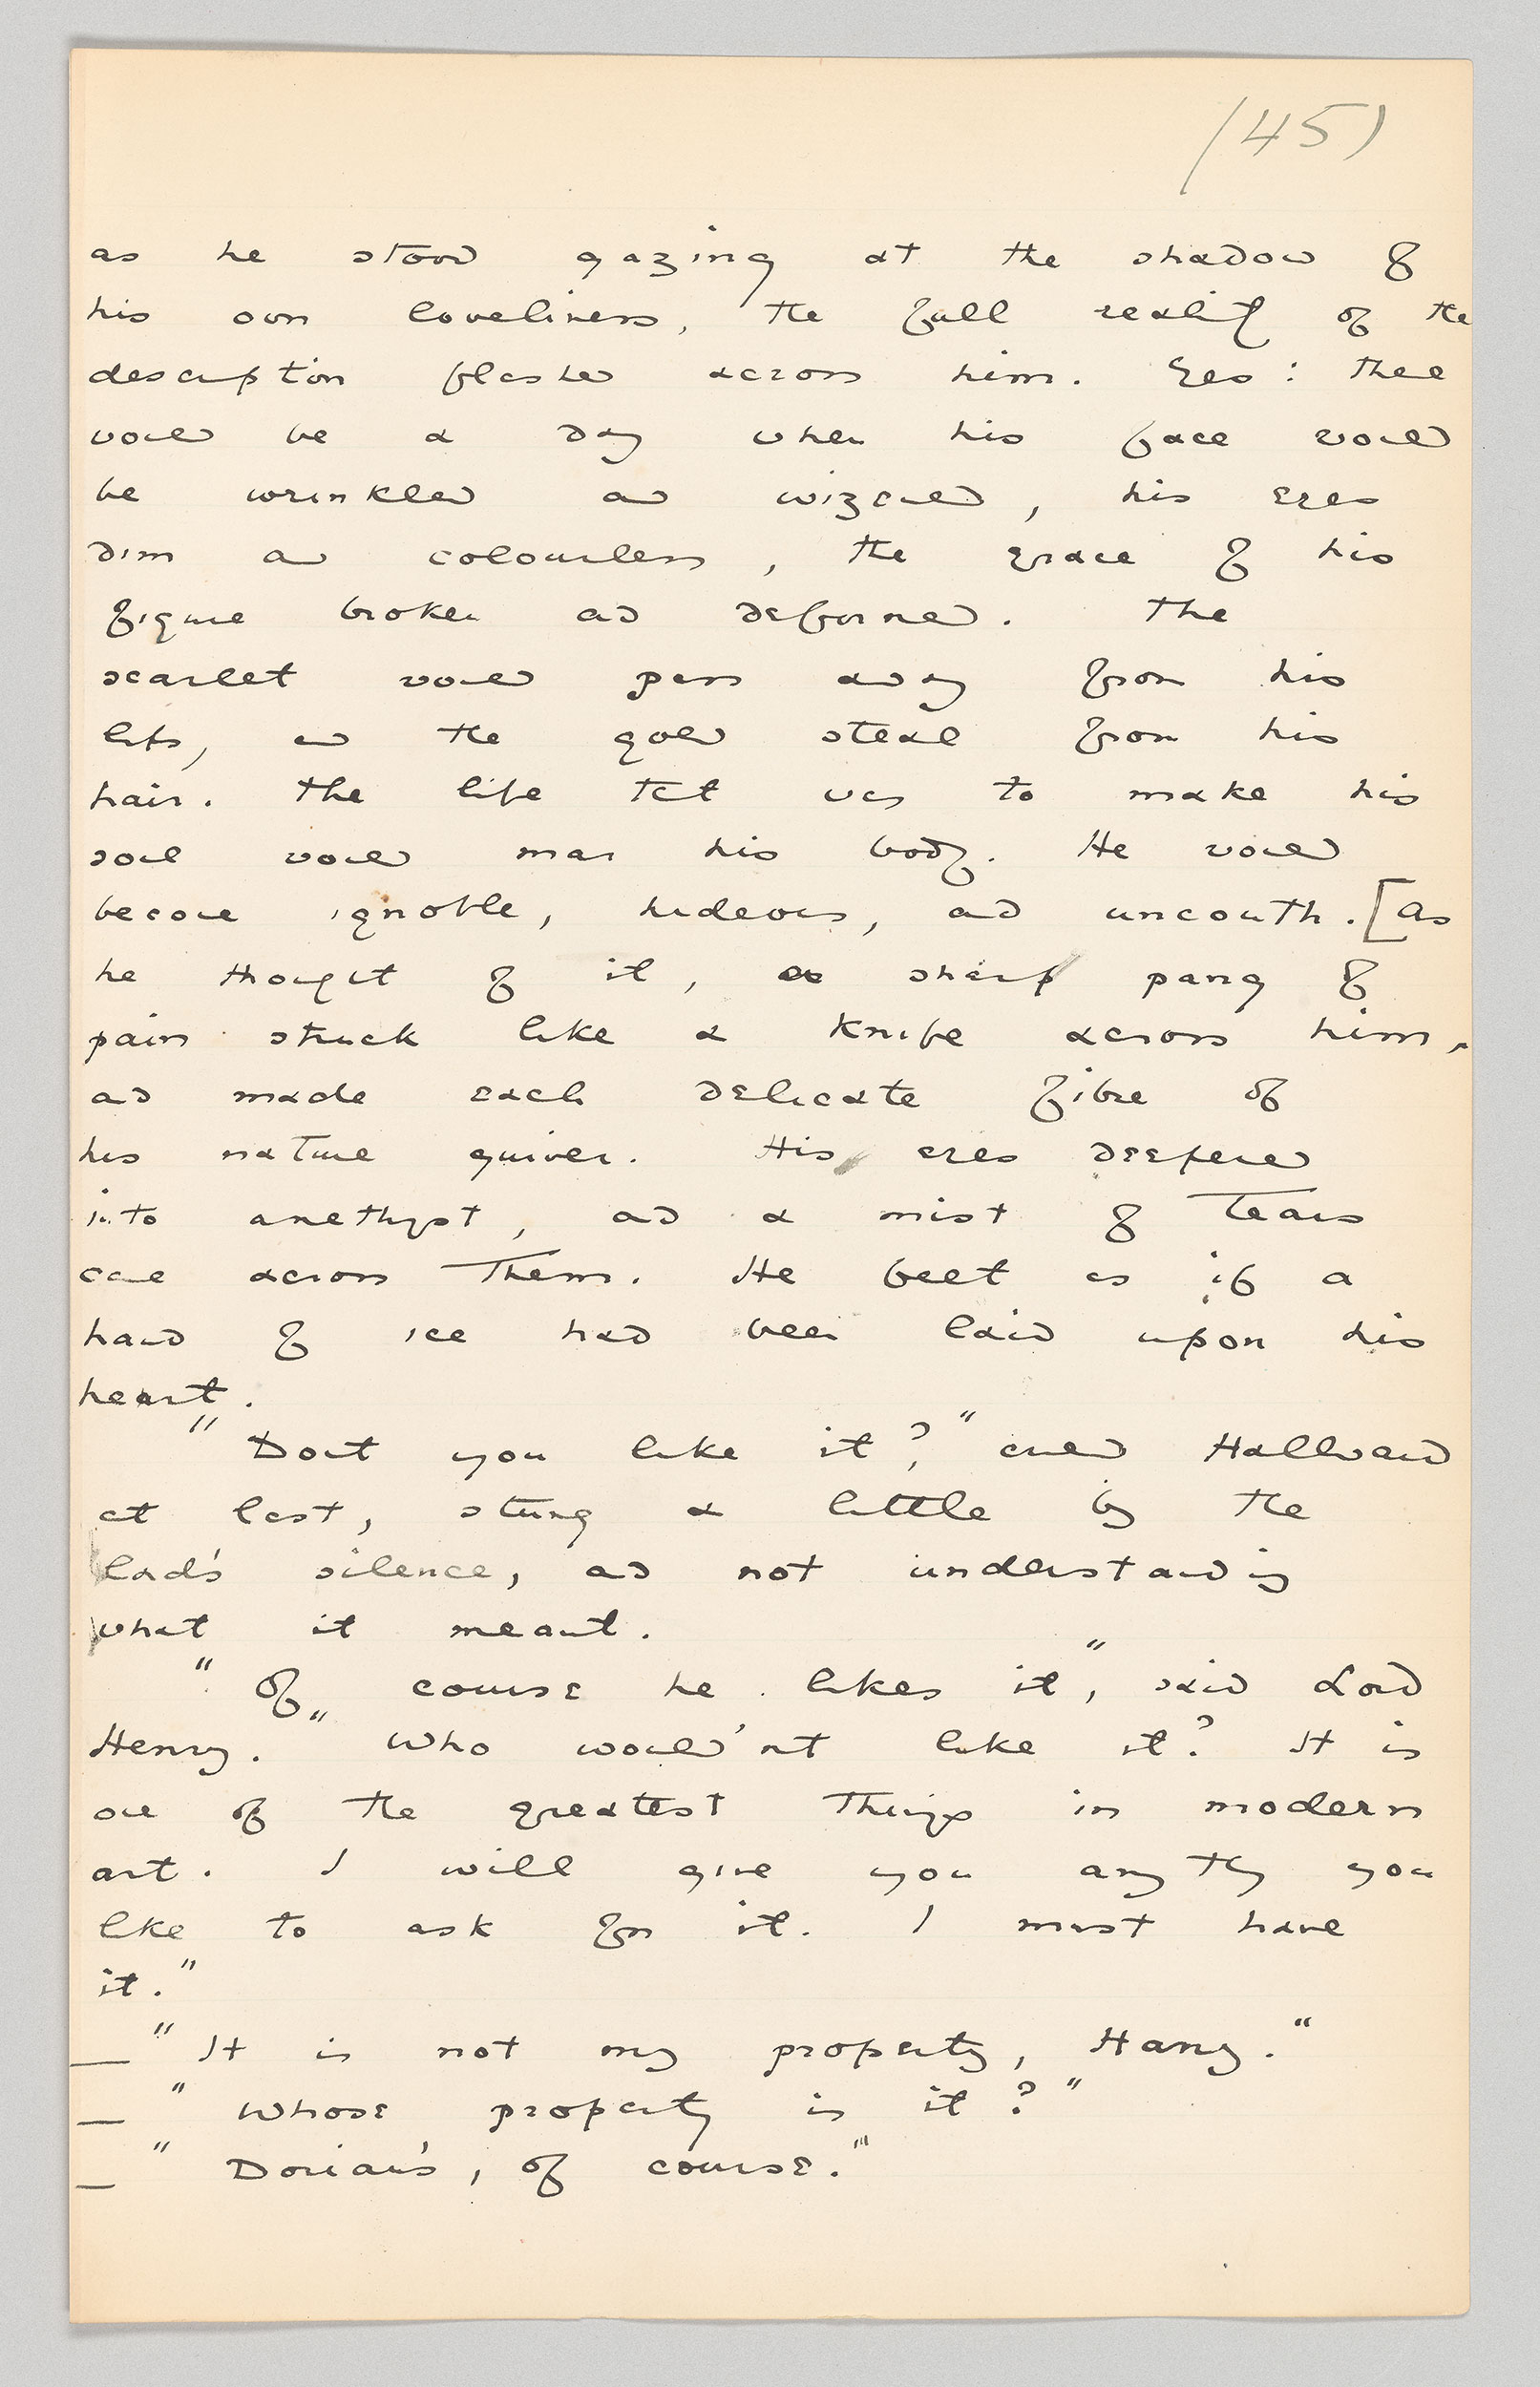 (45)
as he stood gazing at the shadow of
his own loveliness, the full reality of the
description flashed across him. Yes: there
would be a day when his face would
be wrinkled and wizened, his eyes
dim and colourless, the grace of his
figure broken and deformed. The
scarlet would pass away from his
lips, and the gold steal from his
hair. The life that was to make his
soul would mar his body. He would
become ignoble, hideous, and uncouth. [As
he thought of it, a sharp pang of
pain struck like a knife across him,
and made each delicate fibre of
his nature quiver. His eyes deepened
into amethyst, and a mist of tears
came across them. He felt as if a
hand of ice had been laid upon his
heart.
"Don't you like it?" cried Hallward
at last, stung a little by the
lad's silence, and not understanding
what it meant.
"Of course he likes it", said Lord
Henry. "Who would'nt like it? It is
one of the greatest things in modern
art. I will give you anything you
like to ask for it. I must have
it."
— "It is not my property, Harry."
— "Whose property is it?"
— "Dorian's, of course."